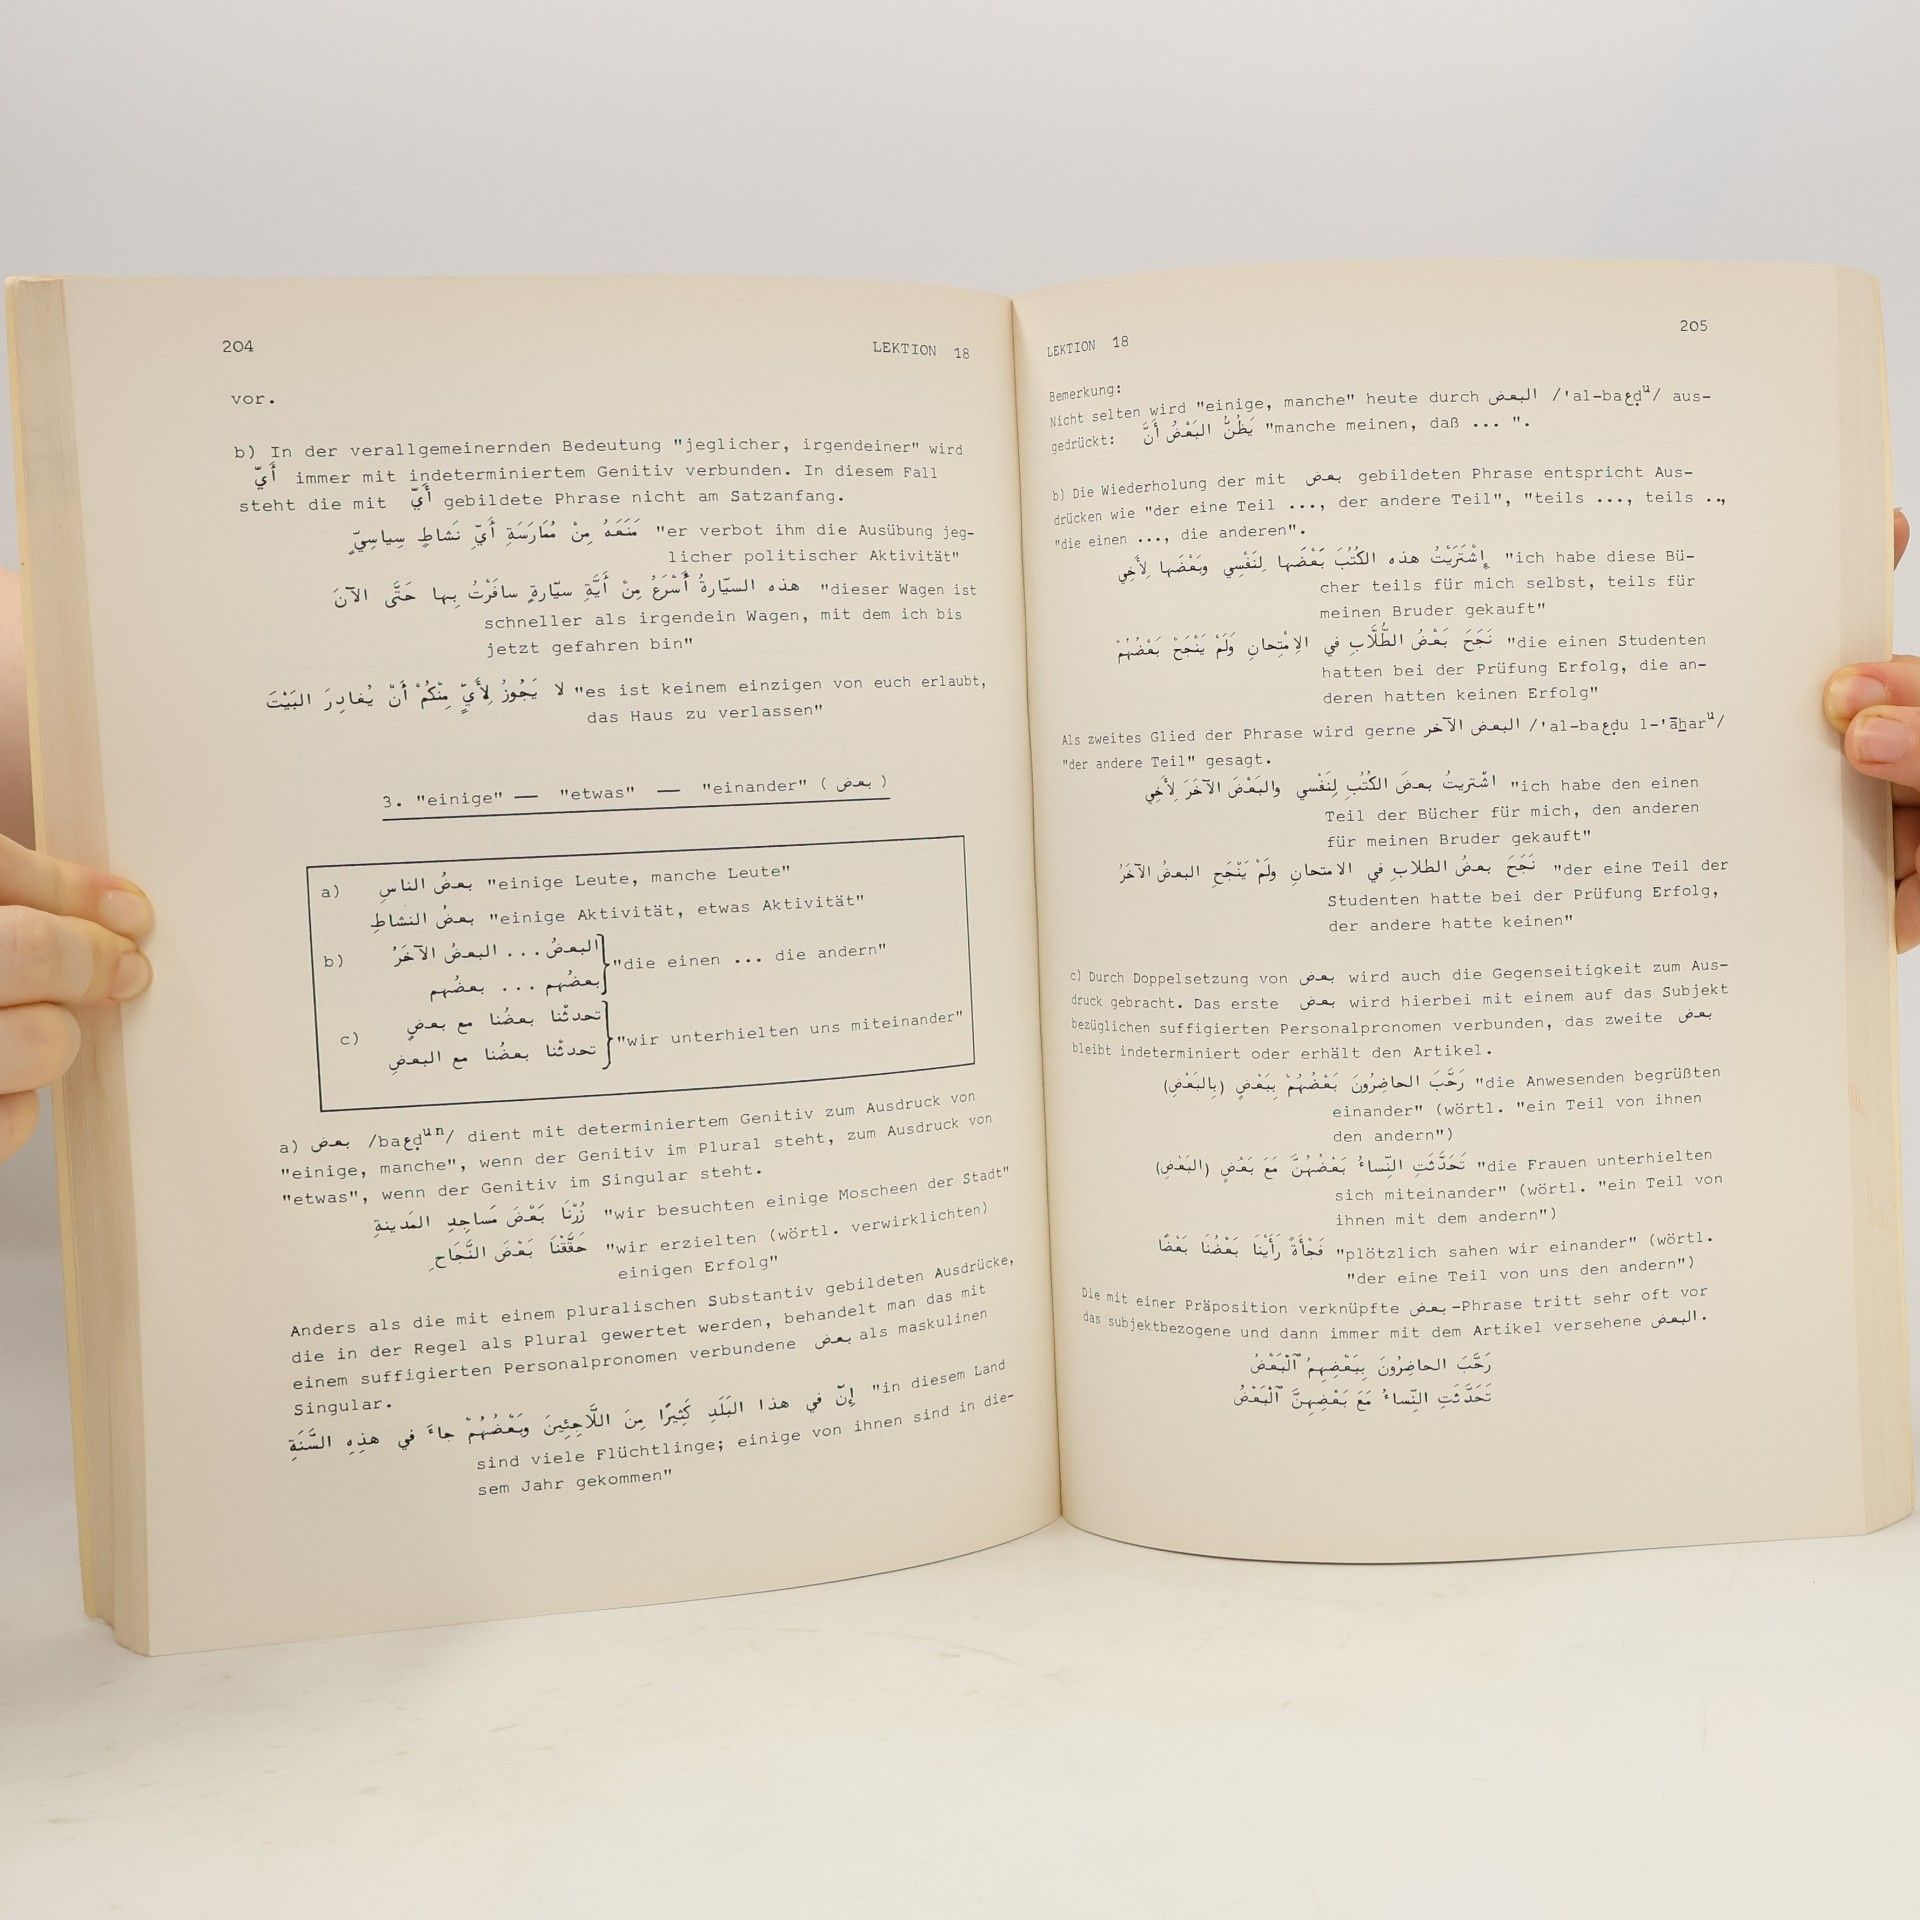 204 LEKTION 18
vor.
b) In der verallgemeinernden Bedeutung "jeglicher, irgendeiner" wird
أَيّ immer mit indeterminiertem Genitiv verbunden. In diesem Fall
steht die mit أَيّ gebildete Phrase nicht am Satzanfang.
مَنَعَهُ مِنْ مُمَارَسَةِ أَيِّ نَشاطٍ سِياسِيٍّ "er verbot ihm die Ausübung jeg-
licher politischer Aktivität"
هذه السيّارةُ أَسْرَعُ مِنْ أَيَّةِ سيّارةٍ سافَرْتُ بِها حَتَّى الآنَ "dieser Wagen ist
schneller als irgendein Wagen, mit dem ich bis
jetzt gefahren bin"
لا يَجُوزُ لِأَيٍّ مِنْكُمْ أَنْ يُغادِرَ البَيْتَ "es ist keinem einzigen von euch erlaubt,
das Haus zu verlassen"
3. "einige" — "etwas" — "einander" ( بعض )
a) بعضُ الناسِ "einige Leute, manche Leute"
بعضُ النشاطِ "einige Aktivität, etwas Aktivität"
b) البعضُ ... البعضُ الآخَرُ
بعضُهم ... بعضُهم "die einen ... die andern"
c) تحدثْنا بعضُنا مع بعضٍ
تحدثْنا بعضُنا مع البعضِ "wir unterhielten uns miteinander"
a) بعض /baʿḍun/ dient mit determiniertem Genitiv zum Ausdruck von
"einige, manche", wenn der Genitiv im Plural steht, zum Ausdruck von
"etwas", wenn der Genitiv im Singular steht.
زُرْنَا بَعْضَ مَساجِدِ المَدينةِ "wir besuchten einige Moscheen der Stadt"
حَقَّقْنَا بَعْضَ النَّجَاحِ "wir erzielten (wörtl. verwirklichten)
einigen Erfolg"
Anders als die mit einem pluralischen Substantiv gebildeten Ausdrücke,
die in der Regel als Plural gewertet werden, behandelt man das mit
einem suffigierten Personalpronomen verbundene بعض als maskulinen
Singular.
إِنّ في هذا البَلَدِ كَثِيرًا مِنَ اللَّاجِئِينَ وبَعْضُهُمْ جاءَ في هذِهِ السَّنَةِ "in diesem Land
sind viele Flüchtlinge; einige von ihnen sind in die-
sem Jahr gekommen"
LEKTION 18 205
Bemerkung:
Nicht selten wird "einige, manche" heute durch البعض /'al-baʿḍu/ aus-
gedrückt: يَظُنُّ البَعْضُ أَنَّ "manche meinen, daß ... ".
b) Die Wiederholung der mit بعض gebildeten Phrase entspricht Aus-
drücken wie "der eine Teil ..., der andere Teil", "teils ..., teils ..,
"die einen ..., die anderen".
إِشْتَرَيْتُ هذه الكُتُبَ بَعْضَها لِنَفْسِي وبَعْضَها لِأَخِي "ich habe diese Bü-
cher teils für mich selbst, teils für
meinen Bruder gekauft"
نَجَحَ بَعْضُ الطُّلَّابِ في الاِمْتِحانِ وَلَمْ يَنْجَحْ بَعْضُهُمْ "die einen Studenten
hatten bei der Prüfung Erfolg, die an-
deren hatten keinen Erfolg"
Als zweites Glied der Phrase wird gerne البعض الآخر /'al-baʿḍu l-'āḫaru/
"der andere Teil" gesagt.
اشْتريتُ بعضَ الكُتُبِ لِنَفْسي والبَعْضَ الآخَرَ لِأَخِي "ich habe den einen
Teil der Bücher für mich, den anderen
für meinen Bruder gekauft"
نَجَحَ بعضُ الطلابِ في الامتحانِ ولَمْ يَنْجَحِ البعضُ الآخَرُ "der eine Teil der
Studenten hatte bei der Prüfung Erfolg,
der andere hatte keinen"
c) Durch Doppelsetzung von بعض wird auch die Gegenseitigkeit zum Aus-
druck gebracht. Das erste بعض wird hierbei mit einem auf das Subjekt
bezüglichen suffigierten Personalpronomen verbunden, das zweite بعض
bleibt indeterminiert oder erhält den Artikel.
رَحَّبَ الحاضِرُونَ بَعْضُهُمْ بِبَعْضٍ (بِالبَعْضِ) "die Anwesenden begrüßten
einander" (wörtl. "ein Teil von ihnen
den andern")
تَحَدَّثَتِ النِّساءُ بَعْضُهُنَّ مَعَ بَعْضٍ (البَعْضِ) "die Frauen unterhielten
sich miteinander" (wörtl. "ein Teil von
ihnen mit dem andern")
فَجْأَةً رَأَيْنَا بَعْضُنَا بَعْضًا "plötzlich sahen wir einander" (wörtl.
"der eine Teil von uns den andern")
Die mit einer Präposition verknüpfte بعض-Phrase tritt sehr oft vor
das subjektbezogene und dann immer mit dem Artikel versehene البعض.
رَحَّبَ الحاضِرُونَ بِبَعْضِهِمُ ٱلْبَعْضُ
تَحَدَّثَتِ النِّساءُ مَعَ بَعْضِهِنَّ ٱلْبَعْضُ